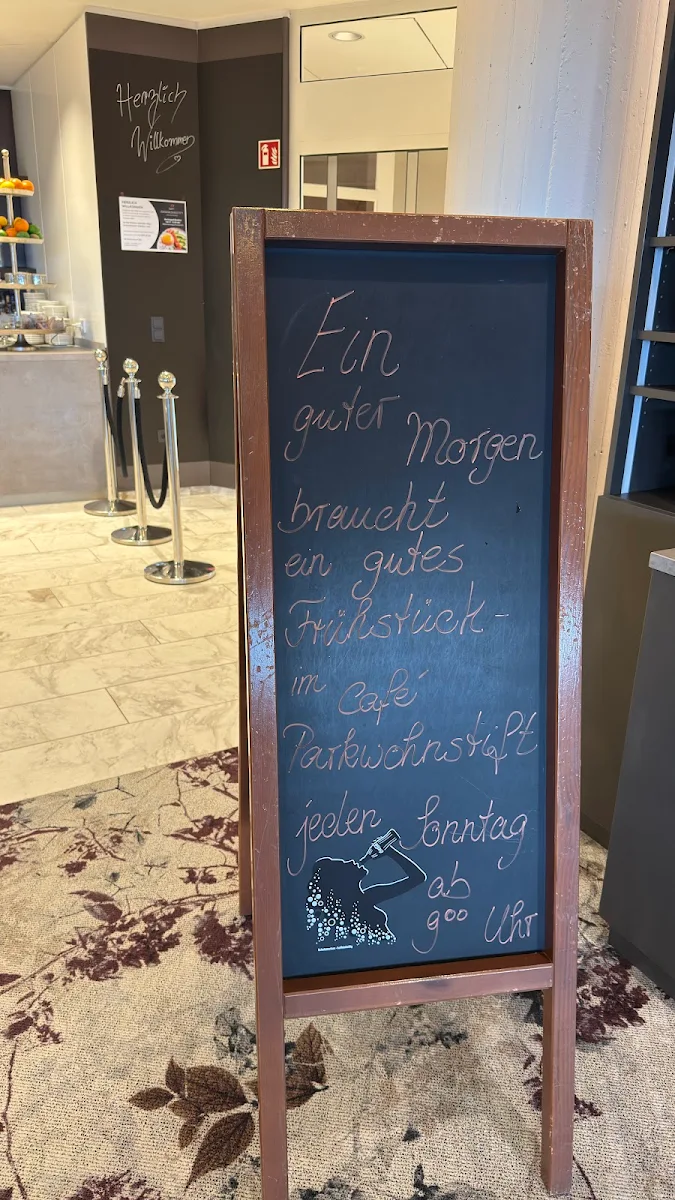 Herzlich
Willkommen
Ein
guter Morgen
braucht
ein gutes
Frühstück-
im Café
Parkwohnstift
jeden Sonntag
ab
9⁰⁰ Uhr